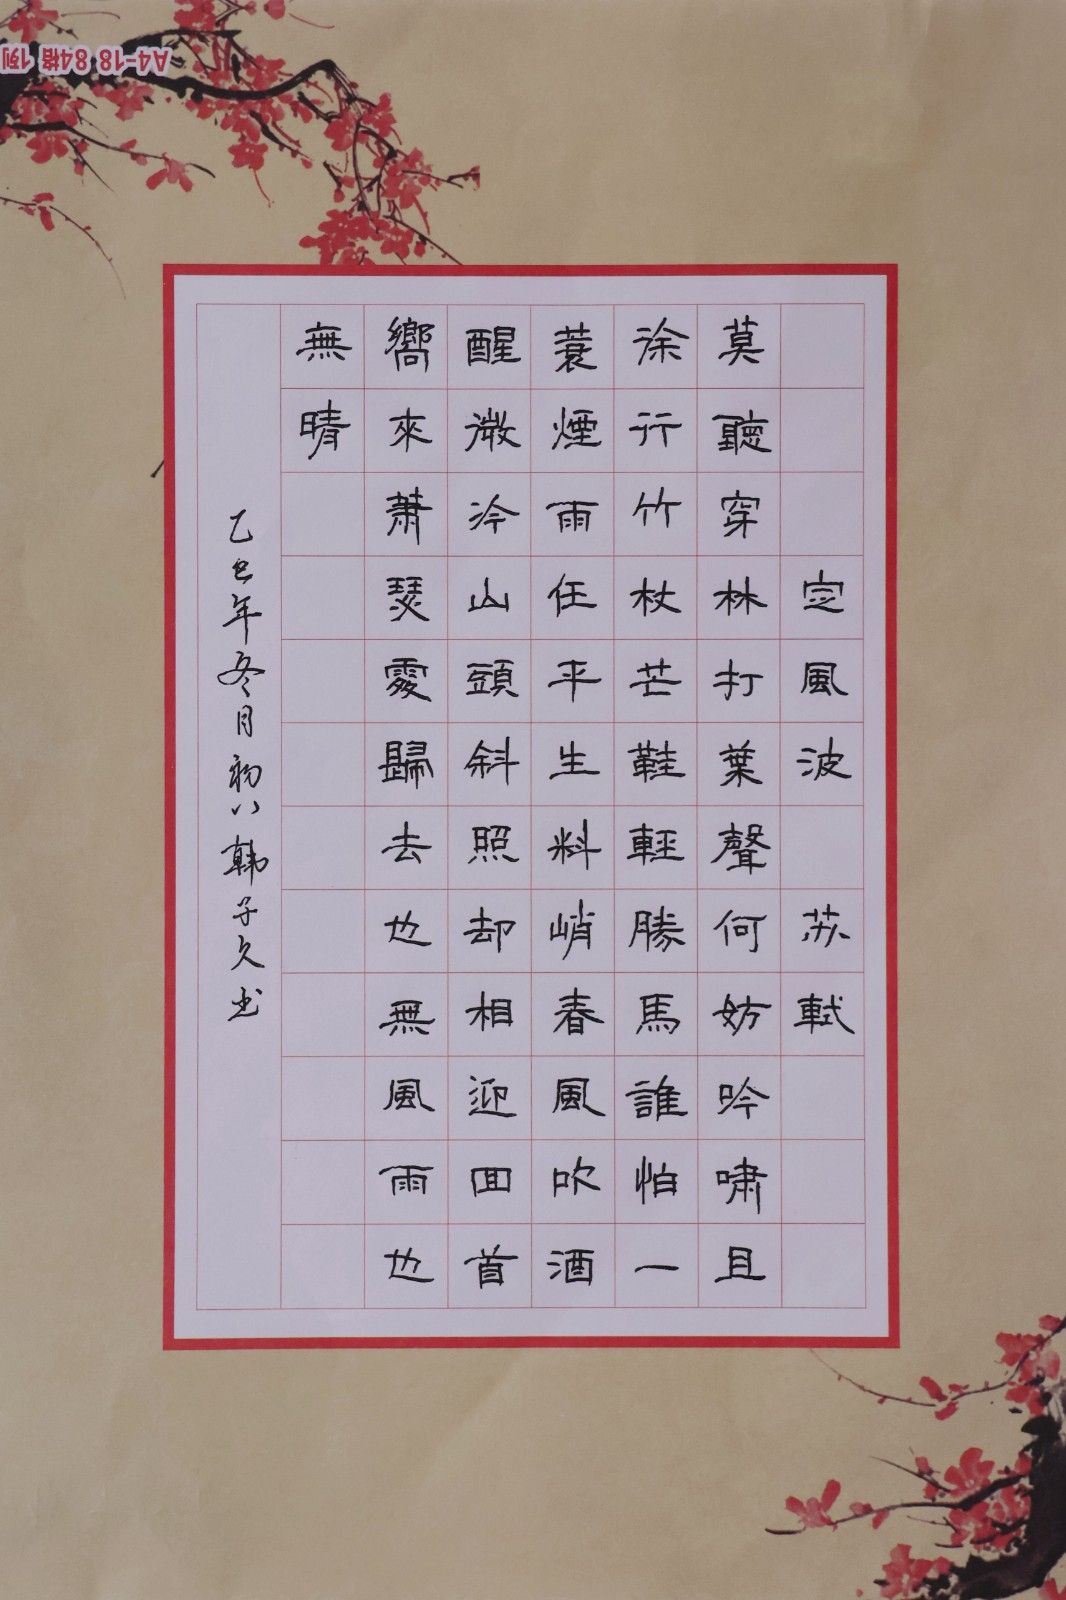 定風波 苏軾
莫聽穿林打葉聲何妨吟嘯且
徐行竹杖芒鞋輕勝馬誰怕一
蓑煙雨任平生料峭春風吹酒
醒微冷山頭斜照却相迎回首
嚮來蕭瑟處歸去也無風雨也
無晴
乙巳年冬月初八韩子久书
A4-18 84格 1列